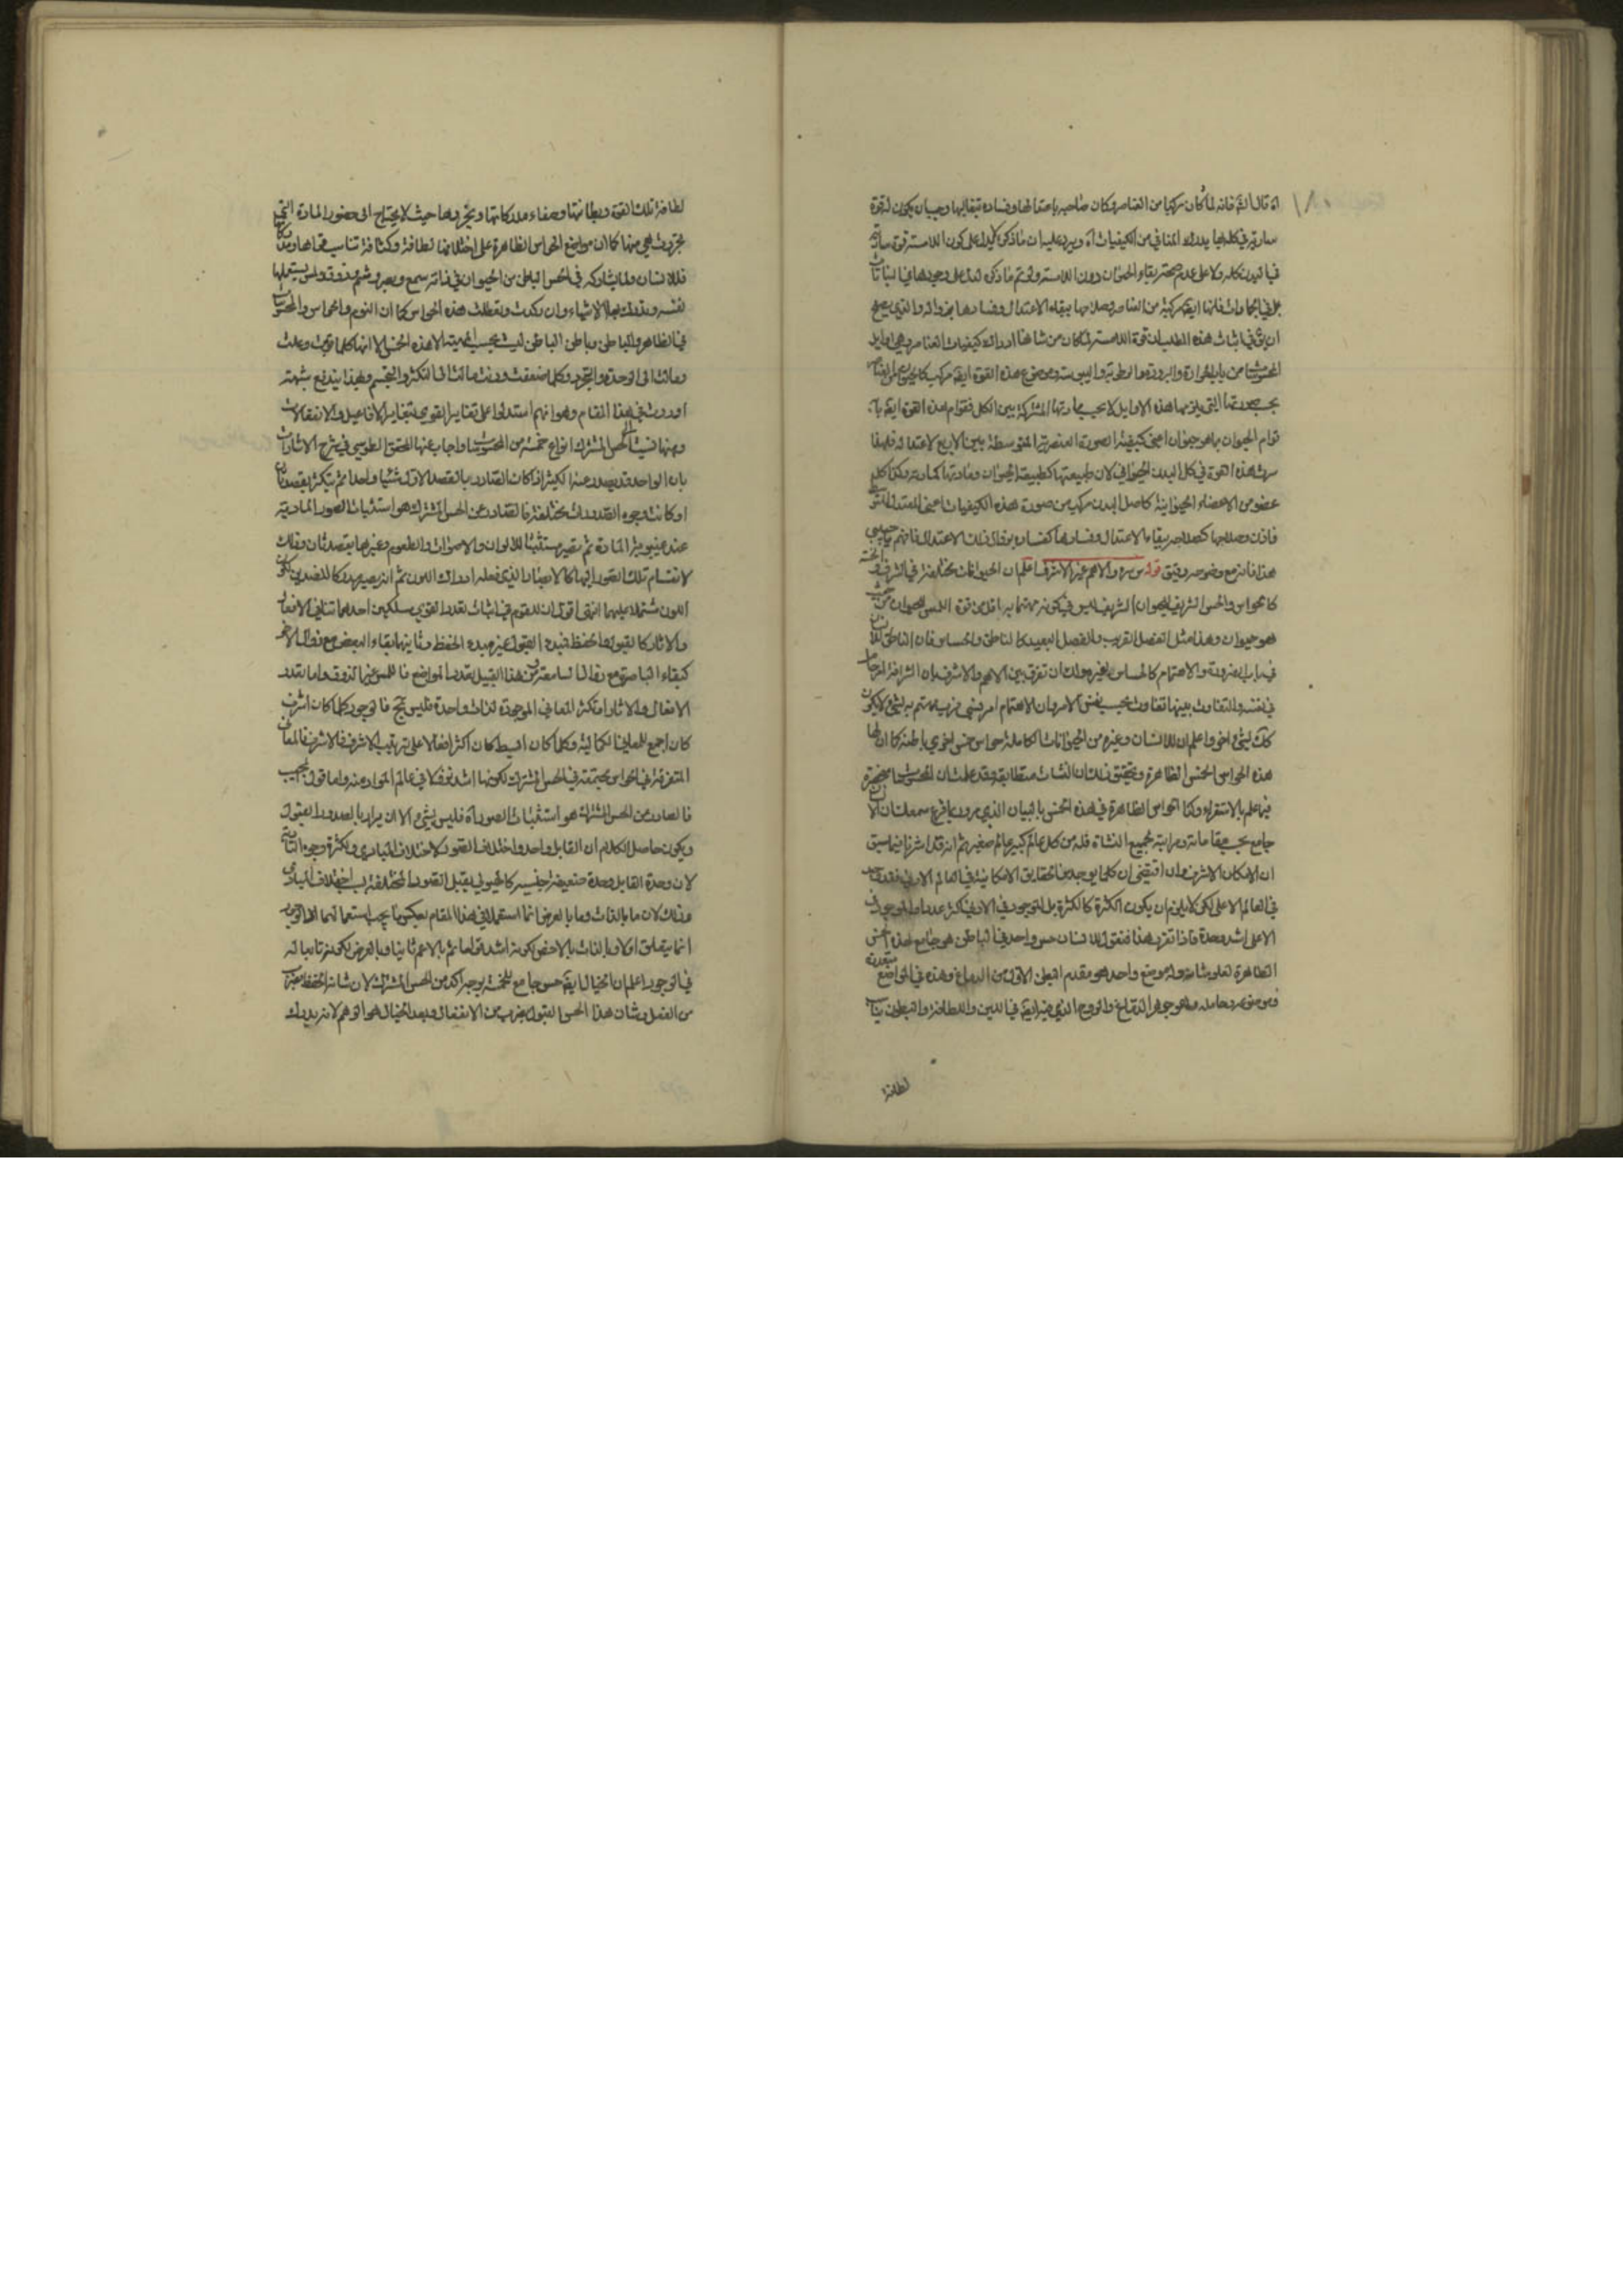 ١٨٠
اه قال الش فانه لما كان مركبا من العناصر وكان صلاحه باعتدالها وفساده بتغالبها وجب ان يكون له قوة
سارية في كله بها يدرك المنافي من الكيفيات اه ويرد عليه ان ما ذكره لا يدل على كون اللامسة قوة سارية
في البدن كله ولا على عدم صحة بقاء الحيوان دون اللامسة ولو تم ما ذكره لدل على وجودها في النباتات
بل في الجمادات فانها ايضا مركبة من العناصر وصلاحها ببقاء الاعتدال وفسادها بزواله والذي يصح
ان يق في اثبات هذه المطلب ان قوة اللامسة لما كان من شانها ادراك كيفيات العناصر وهي اوايل
المحسوسات من باب الحرارة والبرودة والرطوبة واليبوسة وموضوع هذه القوة ايضا مركب كالحيوان من العناصر
بحسب صورتها التي يلزمها هذه الاوايل لا بحسب مادتها المشتركة بين الكل فقوام هذه القوة ايضا بما به
قوام الحيوان بما هو حيوان اعني كيفية الصورة العنصرية المتوسطة بين الاربع لاعتداله فلهذا
سرت هذه القوة في كل البدن الحيواني لان طبيعتها كطبيعة الحيوان ومادتها كمادته وكذا كل
عضو من الاعضاء الحيوانية كاصل البدن مركب من صورة هذه الكيفيات اعني المعتدل المتوسط
فاذن صلاحها كصلاحه ببقاء الاعتدال وفسادها كفساده بزوال ذلك الاعتدال فافهم يا حبيبي
هذا فانه مع وضوحه دقيق قوله س سره والاهم غير الاشرف اعلم ان الحيوانات مختلفة في الشرف والخسة
كالحواس والحس الشريف للحيوان الشريف اليق في كونه مهتما به اقل من قوة اللمس للحيوان من حيث
هو حيوان وهذا مثل الفصل القريب والفصل البعيد كالناطق والحساس فان الناطق للانسان
في باب الضرورة والاهتمام كالحساس لغيره ولك ان تفرق بين الاهم والاشرف بان الشرافة امر حاصل
في نفسه والتفاوت بينهما تفاوت بحسب نفس الامر وان الاهتمام امر نسبي فرب مهتم به لشيء لا يكون
كك لشيء اخر واعلم ان للانسان وغيره من الحيوانات الكاملة حواس خمس اخرى باطنة كما ان لها
هذه الحواس الخمس الظاهرة وتحقيق ذلك ان النشات متطابقة وقد علمت ان المحسوسات منحصرة
فيما علم بالاستقراء وكذا الحواس الظاهرة في هذه الخمس بالبيان الذي مر وربما قرع سمعك ان الانسان
جامع بحسب مقاماته ومراتبه لجميع النشاة فله من كل عالم كبير عالم صغير ثم انه قد اشرنا فيما سبق
ان الامكان الاشرف وان اقتضى ان كلما يوجد من الحقايق الامكانية في العالم الادنى فقد وجد
في العالم الاعلى لكن لا يلزم ان يكون الكثرة كالكثرة بل الموجود في الادنى اكثر عددا والموجود في
الاعلى اشد وحدة فاذا تقرر هذا فنقول للانسان حس واحد في الباطن هو جامع لهذه الخمس
الظاهرة لعلو شانه وله موضع واحد هو مقدم البطن الاول من الدماغ وهذه في المواضع متعددة
وموضوعه وحامله وهو جوهر الدماغ والروح الذي فيه ايضا في اللين واللطافة والتبطن يناسب
لطافة
لطافة تلك القوة وبطانتها وصفاء مدركاتها وتجردها حيث لا يحتاج الى حضور المادة التي
تجردت هي منها كما ان مواضع الحواس الظاهرة على اختلافها لطافة وكثافة تناسب قواها ومدركاتها
فللانسان ولما يشاركه في الحس الباطن من الحيوان في ذاته سمع وبصر وشم وذوق ولمس يستعملها
لنفسه ويدرك بها الاشياء وان ركدت وتعطلت هذه الحواس كما ان النوم والحواس والمحسوسات
في الظاهر والباطن وباطن الباطن ليست بحسب الماهية الا هذه الخمس الا انها كلما قويت وعلت
ومالت الى الوحدة والتجرد وكلما ضعفت ودنت مالت الى التكثر والتجسم وبهذا يندفع شبهة
اوردت في هذا المقام وهو انهم استدلوا على تغاير القوى بتغاير الافاعيل والانفعالات
وههنا نسبت الى الحس المشترك انواع خمسة من المحسوسات واجاب عنها المحقق الطوسي في شرح الاشارات
بان الواحد قد يصدر عنه الكثير اذا كان الصادر بالقصد الاول شيئا واحدا ثم يتكثر بقصد ثان
او كانت وجوه الصدورات مختلفة فالصادر عن الحس المشترك هو استثبات الصور المادية
عند غيبوبة المادة ثم يصير مستثبتا للالوان والاصوات والطعوم وغيرها بقصد ثان وذلك
لانقسام تلك الصور اليها كالابصار الذي فعله ادراك اللون ثم انه يصير مدركا للضدين لكون
اللون مشتملا عليهما انتهى اقول ان للقوم في اثبات تعدد القوى مسلكين احدهما تنافي الافعال
والاثار كالقبول والحفظ فمبدء القبول غير مبدء الحفظ وثانيهما بقاء البعض مع زوال الاخر
كبقاء الباصرة مع زوال السامعة ومن هذا القبيل تعدد المواضع فاللمس غير الذوق واما تعدد
الافعال والاثار او تكثر المعاني الموجودة لذات واحدة فليس بحجة فالوجود كلما كان اشرف
كان اجمع للمعاني الكمالية وكلما كان ابسط كان اكثر افعالا على ترتيب الاشرف فالاشرف فالمعاني
المتفرقة في الحواس مجتمعة في الحس المشترك لكونها اشد تفرقا في عالم المواد منه واما قول المجيب
فالصادر عن الحس المشترك هو استثبات الصور اه فليس بشيء الا ان يراد بالصدور القبول
ويكون حاصل الكلام ان القابل واحد واختلاف الصور لاختلاف المبادي وكثرة وجوه التاثير
لان وحدة القابل وحدة ضعيفة جنسية كالهيولى يقبل الصور المختلفة بسبب اختلاف المبادي
وذلك لان ما بالذات وما بالعرض انما استعملا في هذا المقام بعكس ما يجب استعمالهما
انما يتعلق اولا وبالذات بالاخص لكونه اشد تحصلا ثم بالاعم ثانيا وبالعرض لكونه تابعا له
في الوجود اعلم ان الخيال ايضا حس جامع للخمسة بوجه اكد من الحس المشترك لان شانه الحفظ وضرب
من الفعل وشان هذا الحس القبول وضرب من الانفعال وبعد الخيال هو الوهم لانه يدرك